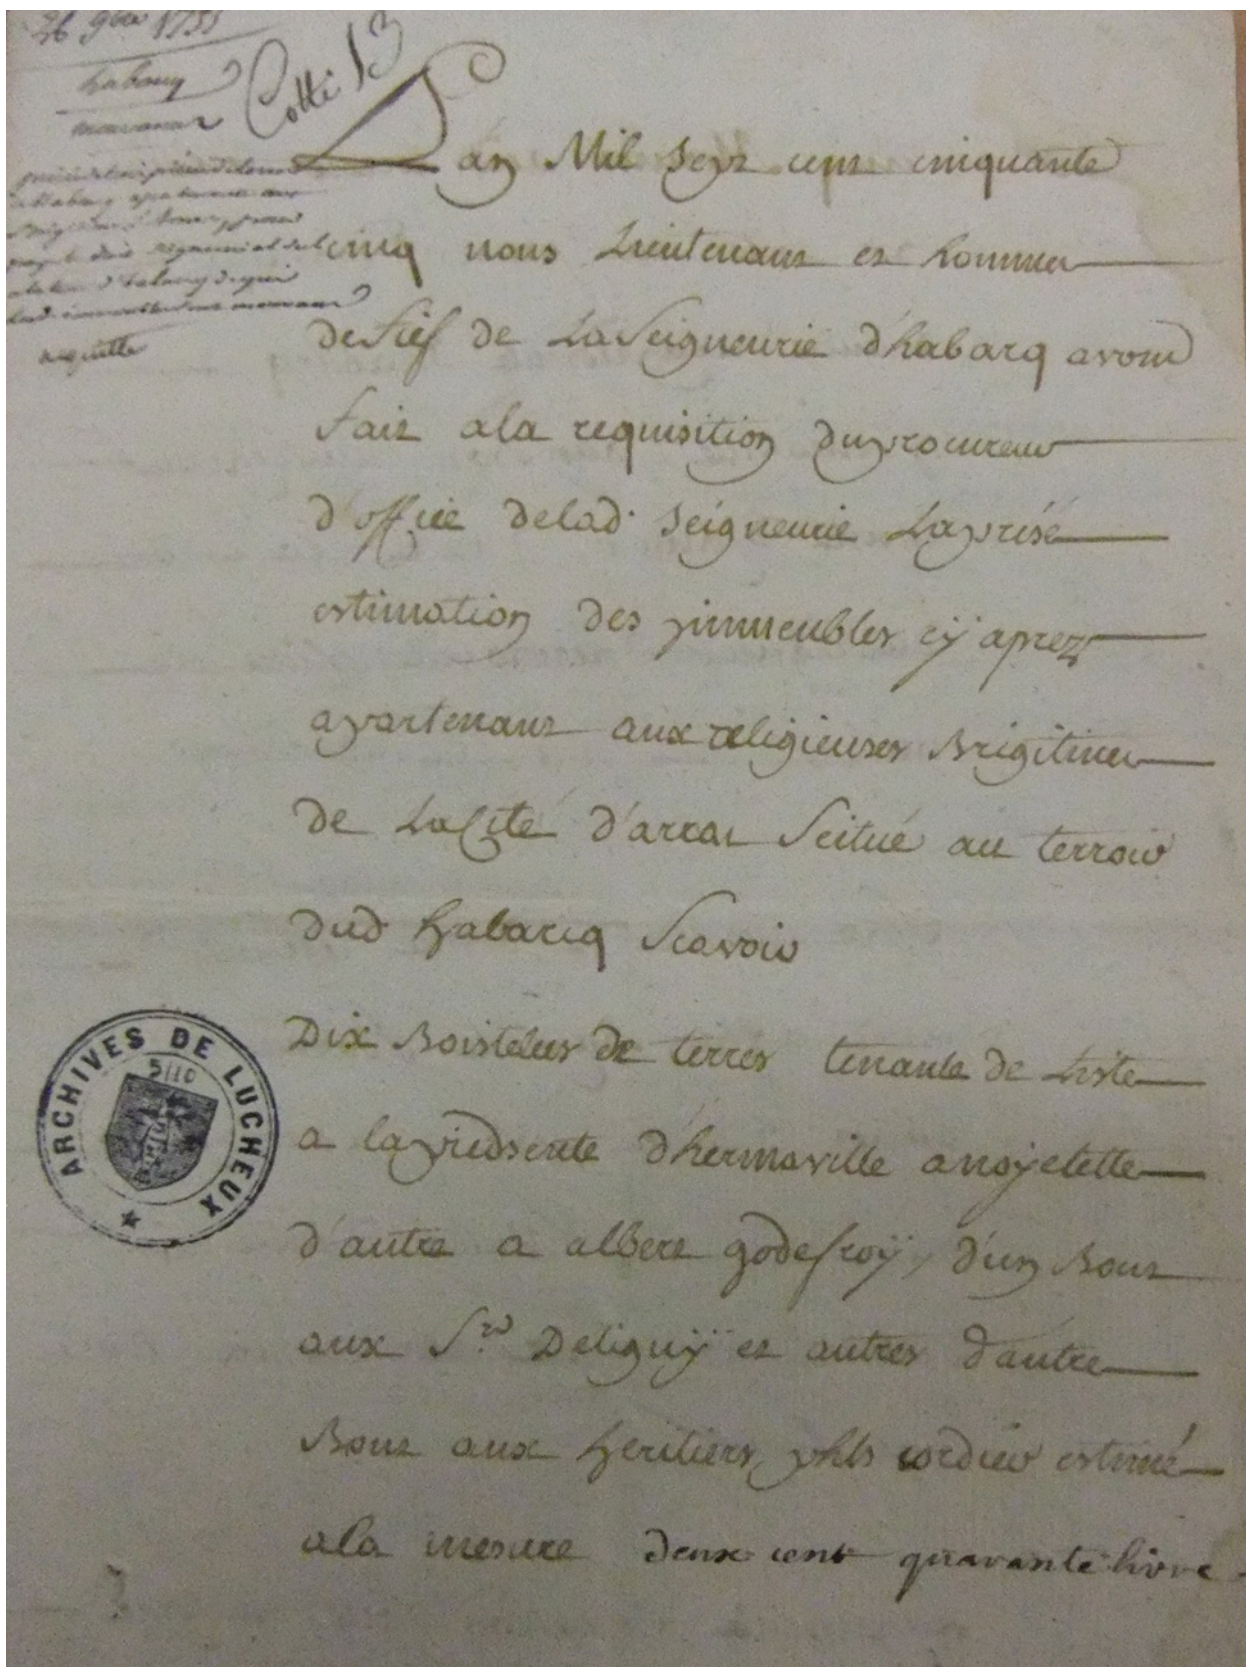 26 9bre 1755
habarcq
mouvance
Cotté 13
L'an Mil Sept cent cinquante
cinq nous Lieutenant et hommes
de fief de La Seigneurie d'habarcq avons
fait a la requisition du procureur
d'office de lad. Seigneurie La prisé
estimation des jmmeubles cÿ aprez
apartenant aux religieuses Brigitines
de La Cité d'arras Scitué au terroir
dud habarcq Scavoir
Dix Boistelees de terres tenante de Liste
a la piedsente d'hermaville a noÿelette
d'autre a albert godefroÿ, d'un Bout
aux Srs Delignÿ et autres d'autre
Bout aux heritiers phls cordier estimé
a la mesure deux cent quarante livre
ARCHIVES DE LUCHEUX
5110